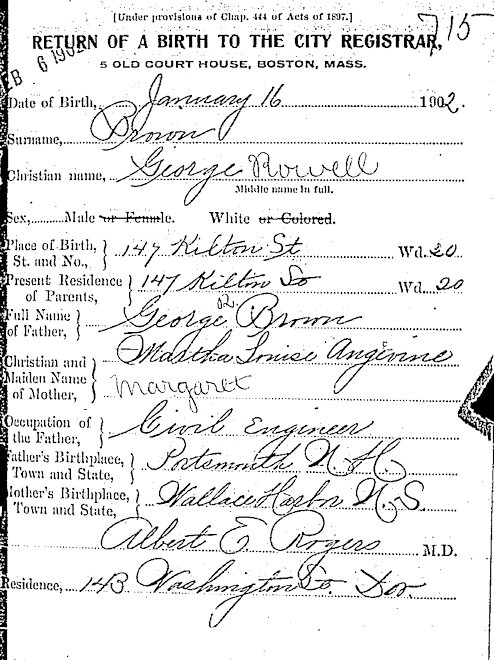 [Under provisions of Chap. 444 of Acts of 1897.]
715
RETURN OF A BIRTH TO THE CITY REGISTRAR,
EB 6 190
5 OLD COURT HOUSE, BOSTON, MASS.
Date of Birth, January 16 1902.
Surname, Brown
Christian name, George Rowell
Middle name in full.
Sex, Male or Female. White or Colored.
Place of Birth, St. and No., } 147 Kilton St Wd. 20
Present Residence of Parents, } 147 Kilton St Wd. 20
R.
Full Name of Father, } George Brown
Christian and Maiden Name of Mother, } Martha Louise Angevine
Margaret
Occupation of the Father, } Civil Engineer
Father's Birthplace, Town and State, } Portsmouth N.H.
Mother's Birthplace, Town and State, } Wallace Harbor N.S.
Albert E. Rogers M.D.
Residence, 143 Washington St. Dor.